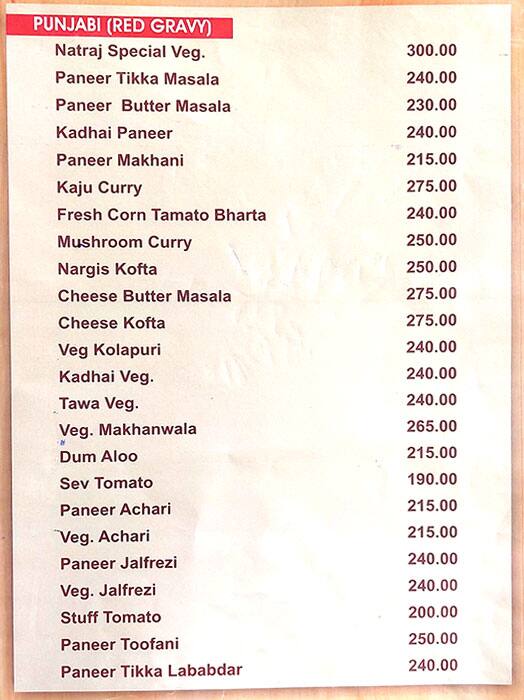 PUNJABI (RED GRAVY)
Natraj Special Veg. 300.00
Paneer Tikka Masala 240.00
Paneer Butter Masala 230.00
Kadhai Paneer 240.00
Paneer Makhani 215.00
Kaju Curry 275.00
Fresh Corn Tamato Bharta 240.00
Mushroom Curry 250.00
Nargis Kofta 250.00
Cheese Butter Masala 275.00
Cheese Kofta 275.00
Veg Kolapuri 240.00
Kadhai Veg. 240.00
Tawa Veg. 240.00
Veg. Makhanwala 265.00
Dum Aloo 215.00
Sev Tomato 190.00
Paneer Achari 215.00
Veg. Achari 215.00
Paneer Jalfrezi 240.00
Veg. Jalfrezi 240.00
Stuff Tomato 200.00
Paneer Toofani 250.00
Paneer Tikka Lababdar 240.00